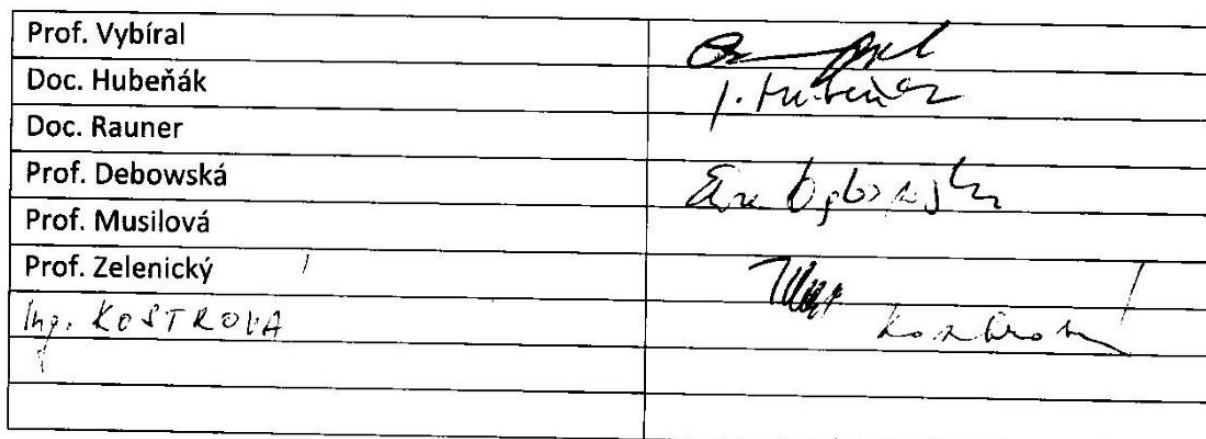 Prof. Vybíral
Doc. Hubeňák J. Hubeňák
Doc. Rauner
Prof. Debowská
Prof. Musilová
Prof. Zelenický
Ing. KOSTROVA